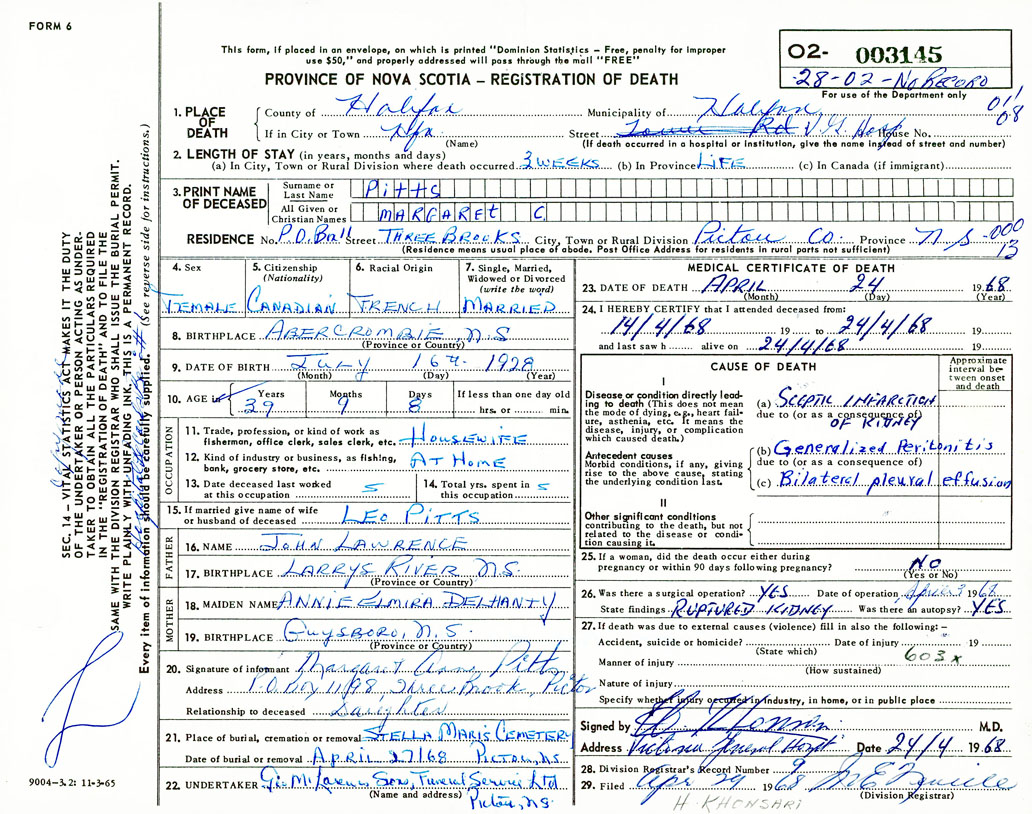 FORM 6
This form, if placed in an envelope, on which is printed "Dominion Statistics – Free, penalty for improper
use $50," and properly addressed will pass through the mail "FREE"
O2- 003145
28-02-No Record
For use of the Department only
PROVINCE OF NOVA SCOTIA – REGISTRATION OF DEATH
1. PLACE OF DEATH
County of Halifax Municipality of Halifax
011
08
If in City or Town Hfx. Street Tower Rd V.G. Hosp House No.
(Name) (If death occurred in a hospital or institution, give the name instead of street and number)
2. LENGTH OF STAY (in years, months and days)
(a) In City, Town or Rural Division where death occurred 3 WEEKS (b) In Province LIFE (c) In Canada (if immigrant)
3. PRINT NAME OF DECEASED
Surname or Last Name PITTS
All Given or Christian Names MARGARET C
RESIDENCE No. P.O. Box 11 Street THREE BROOKS City, Town or Rural Division Pictou Co. Province N S -000
13
(Residence means usual place of abode. Post Office Address for residents in rural parts not sufficient)
4. Sex
5. Citizenship (Nationality)
6. Racial Origin
7. Single, Married, Widowed or Divorced (write the word)
FEMALE CANADIAN FRENCH MARRIED
8. BIRTHPLACE ABERCROMBIE, N.S
(Province or Country)
9. DATE OF BIRTH JULY 16th 1928
(Month) (Day) (Year)
10. AGE in Years Months Days If less than one day old
39 9 8 hrs. or min.
OCCUPATION
11. Trade, profession, or kind of work as fisherman, office clerk, sales clerk, etc. HOUSEWIFE
12. Kind of industry or business, as fishing, bank, grocery store, etc. AT HOME
13. Date deceased last worked at this occupation
14. Total yrs. spent in this occupation
15. If married give name of wife or husband of deceased LEO PITTS
FATHER
16. NAME JOHN LAWRENCE
17. BIRTHPLACE LARRYS RIVER N.S.
(Province or Country)
MOTHER
18. MAIDEN NAME ANNIE ELMIRA DELHANTY
19. BIRTHPLACE GUYSBORO, N.S.
(Province or Country)
20. Signature of informant Margaret Anne Pitts
Address P.O Box 1198, Three Brooks, Pictou
Relationship to deceased Daughter
21. Place of burial, cremation or removal STELLA MARIS CEMETERY
Date of burial or removal APRIL 27/68 PICTOU, N.S.
22. UNDERTAKER Son, Funeral Service Ltd
(Name and address) Pictou, N.S.
MEDICAL CERTIFICATE OF DEATH
23. DATE OF DEATH APRIL 24 1968
(Month) (Day) (Year)
24. I HEREBY CERTIFY that I attended deceased from:
14/4/68 19 to 24/4/68 19
and last saw h alive on 24/4/68 19
CAUSE OF DEATH
Approximate interval between onset and death
I
Disease or condition directly leading to death (This does not mean the mode of dying, e.g., heart failure, asthenia, etc. It means the disease, injury, or complication which caused death.)
(a) SCEPTIC INFARCTION
due to (or as a consequence of)
OF KIDNEY
Antecedent causes
Morbid conditions, if any, giving rise to the above cause, stating the underlying condition last.
(b) Generalized Peritonitis
due to (or as a consequence of)
(c) Bilateral pleural effusion
II
Other significant conditions
contributing to the death, but not related to the disease or condition causing it.
25. If a woman, did the death occur either during pregnancy or within 90 days following pregnancy? NO
(Yes or No)
26. Was there a surgical operation? YES Date of operation 1968
State findings RUPTURED KIDNEY Was there an autopsy? YES
27. If death was due to external causes (violence) fill in also the following: –
Accident, suicide or homicide? Date of injury 19
(State which)
603x
Manner of injury
(How sustained)
Nature of injury
Specify whether injury occurred in industry, in home, or in public place
Signed by M.D.
Address Victoria General Hospt Date 24/4 1968
28. Division Registrar's Record Number
29. Filed Apr 29 1968
(Division Registrar)
H. KHONSARI
SEC. 14 – VITAL STATISTICS ACT MAKES IT THE DUTY
OF THE UNDERTAKER OR PERSON ACTING AS UNDER-
TAKER TO OBTAIN ALL THE PARTICULARS REQUIRED
IN THE "REGISTRATION OF DEATH" AND TO FILE THE
SAME WITH THE DIVISION REGISTRAR WHO SHALL ISSUE THE BURIAL PERMIT.
WRITE PLAINLY WITH UNFADING INK. THIS IS A PERMANENT RECORD.
Every item of information should be carefully supplied. (See reverse side for instructions.)
9004–3.2: 11-3-65